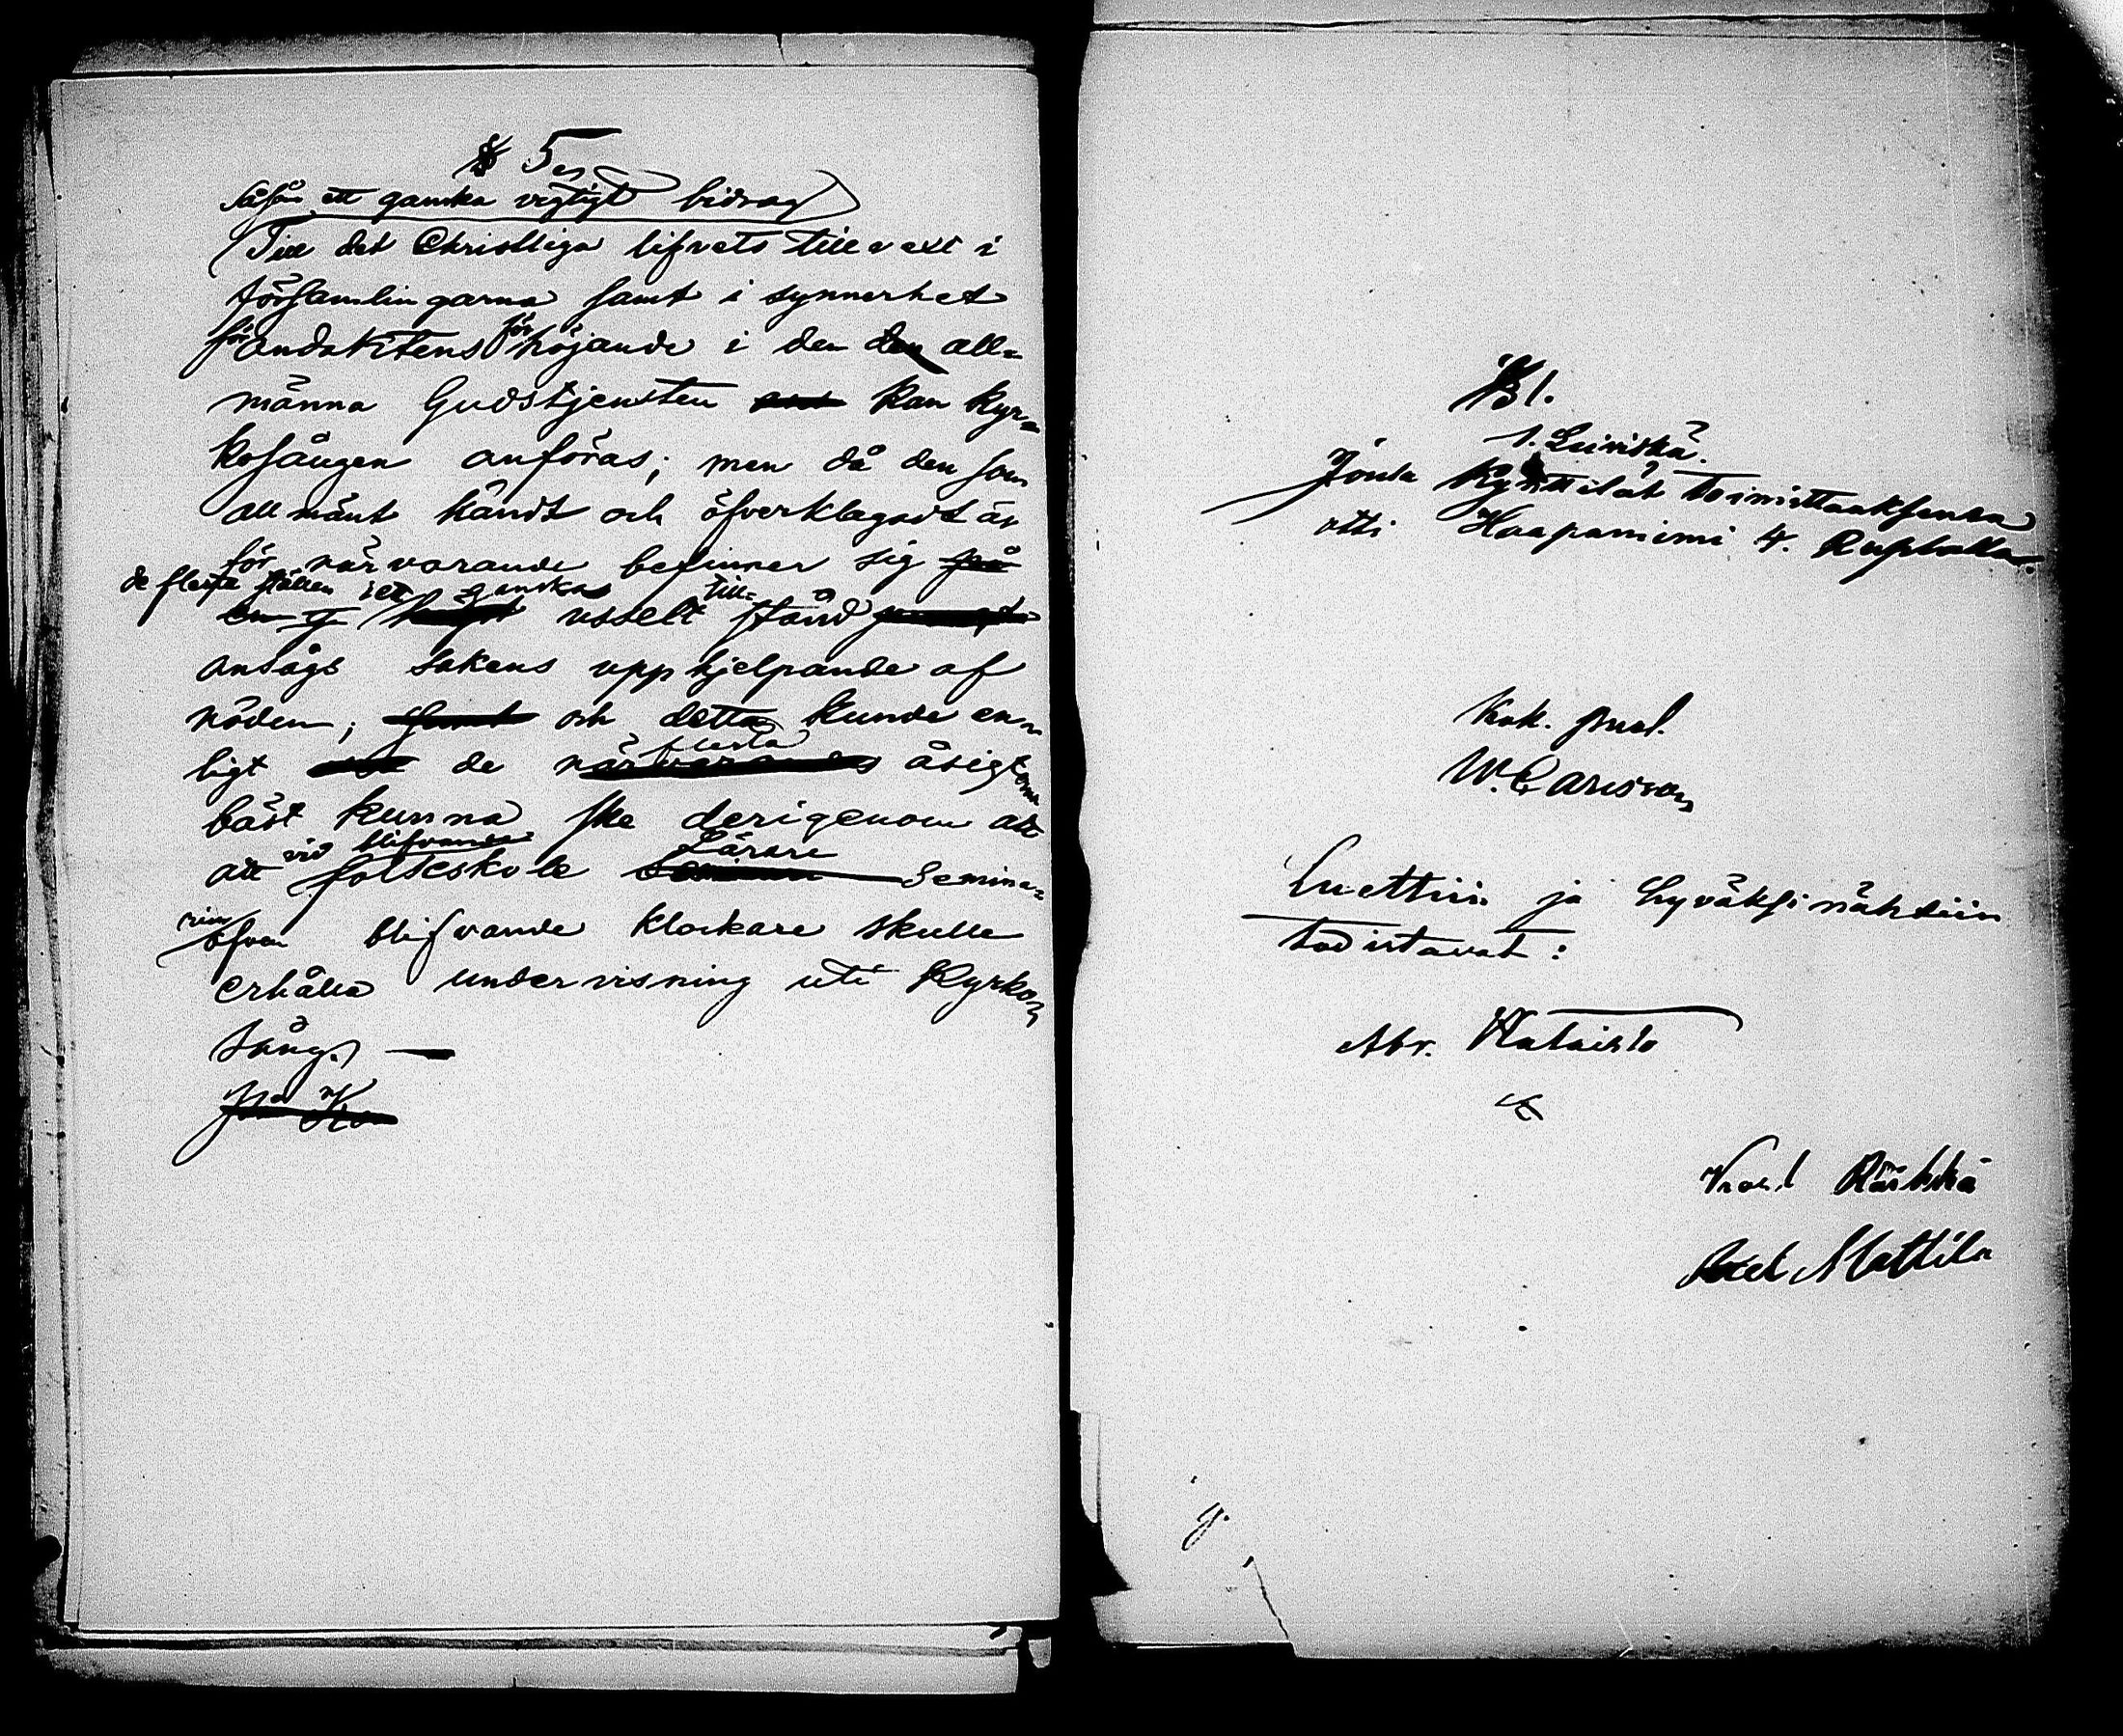 § 5
Såsom ett ganska vigtigt bidrag
Till det Christliga lifvets tillvext i
församlingarna samt i synnerhet
för andaktens för höjande i den den all=
männa Gudstjensten kan kyr=
kosången anföras; men då den som
allmänt kändt och öfverklagadt är
för närvarande befinner sig på
de flesta ställen i ett ganska till=
högst usselt stånd
ansågs sakens upphjelpande af
nöden; samt och detta kunde en=
ligt de närvarandes flesta åsigt
bäst kunna ske derigenom att
att vid blifvande folkskole Lärare Semina=
rium äfven blifvande klockare skulle
erhålla undervisning uti Kyrko=
sång. —
§ 1.
1. Leiviskä.
Jonka Kynttilät toimittaaksensa
otti Haapaniemi 4. Ruplalla.
Kok. puol.
W. Carlsson
Luettiin ja hyväksi nähtiin
todistavat:
Abr. Hataisto
Axel Mattila